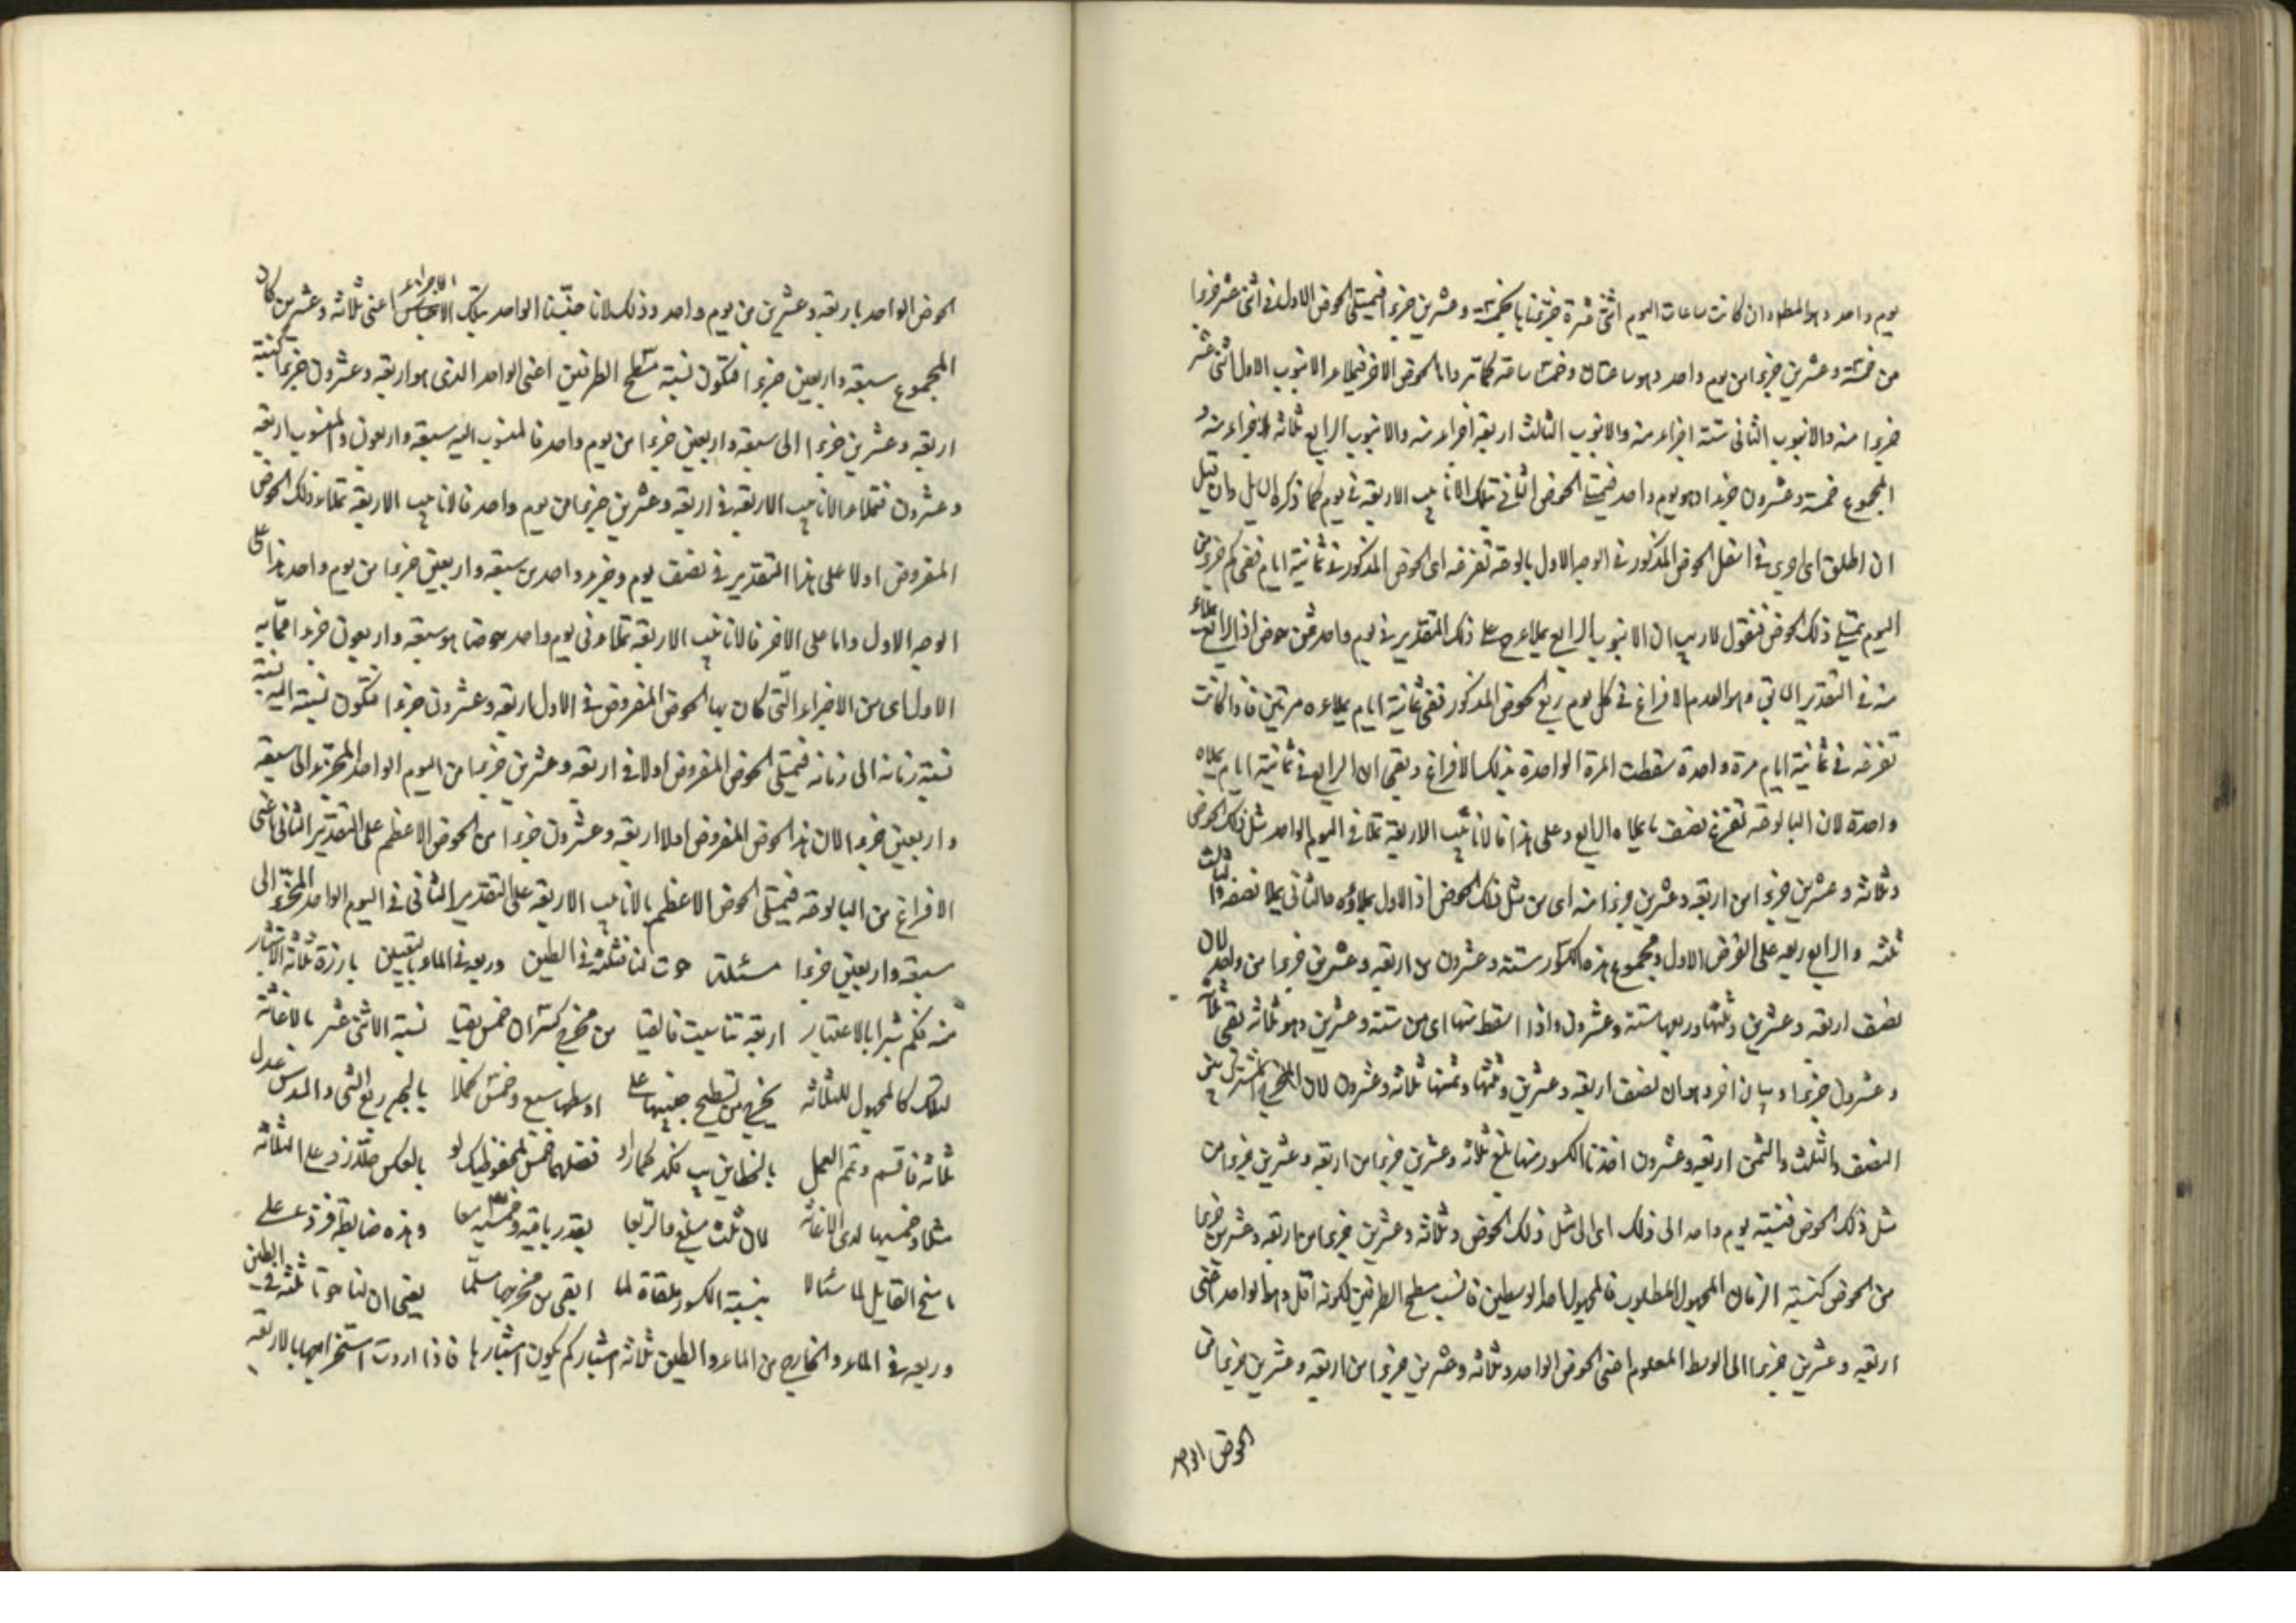 يوم واحد وهو المطلوب وان كانت ساعات اليوم اثنتى عشرة جزينا بالخمسة وعشرين جزءا فيمتلى الحوض الاول فى اثنى عشر جزءا
من خمسة وعشرين جزءا من يوم واحد وهو ساعتان وخمسا ساعة كما تر واما الحوض الاخر فيملاء الانبوب الاول اثنى عشر
جزءا منه والانبوب الثانى ستة اجزاء منه والانبوب الثالث اربعة اجزاء منه والانبوب الرابع ثلاثة اجزاء منه و
المجموع خمسة وعشرون جزءا وهو يوم واحد فيمتلى الحوض الثانى تلك الانابيب الاربعة فى يوم كما ذكره السائل وان قيل
ان اطلق اى اجرى فى اسفل الحوض المذكور فى الوجه الاول بالوعة تفرغه اى الحوض المذكور فى ثمانية ايام ففى كم جزء من
اليوم يمتلى ذلك الحوض فنقول لا ريب ان الانبوب الرابع يملاء ح على ذلك التقدير فى يوم واحد ثمن حوض اذ الرابع يملاء
منه فى التقدير السابق وهو العدم الافراغ فى كل يوم ربع الحوض المذكور ففى ثمانية ايام يملاءه مرتين فاذا كانت
تفرغه فى ثمانية ايام مرة واحدة سقطت المرة الواحدة بذلك الافراغ وبقى ان الرابع فى ثمانية ايام يملاه
واحدة لان البالوعة تفرغ نصف ما يملاه الرابع وعلى هذا فالانابيب الاربعة تملا فى اليوم الواحد مثل ذلك الحوض
وثلاثة وعشرين جزءا من اربعة وعشرين جزءا منه اى من مثل ذلك الحوض اذ الاول يملاؤه والثانى يملا نصفه والثالث
ثلثه والرابع ربعه على الفرض الاول ومجموع هذه الكسور ستة وعشرون من اربعة وعشرين جزءا من واحد لان
نصف اربعة وعشرين وثلثها وربعها ستة وعشرون واذا اسقط منها اى من ستة وعشرين وهو ثلاثة بقى ثلاثة
وعشرون جزءا وبيان اخر وهو ان نصف اربعة وعشرين وثلثها وثمنها ثلاثة وعشرون لان المخرج المشترك بين
النصف والثلث والثمن اربعة وعشرون اخذنا الكسور منها بلغ ثلاثة وعشرين جزءا من اربعة وعشرين جزءا من
مثل ذلك الحوض فنسبة يوم واحد الى ذلك اى الى مثل ذلك الحوض وثلاثة وعشرين جزءا من اربعة وعشرين جزءا
من الحوض كنسبة الزمان المجهول المطلوب فالمجهول احد الوسطين فانسب مسطح الطرفين لكونه اقل وهو الواحد اعنى
اربعة وعشرين جزءا الى الوسط المعلوم اعنى الحوض الواحد وثلاثة وعشرين جزءا من اربعة وعشرين جزءا من
الحوض الواحد
الحوض الواحد باربعة وعشرين من يوم واحد وذلك لانا جنسنا الواحد بتلك الاجزاء اعنى ثلاثة وعشرين كان
المجموع سبعة واربعين جزءا فتكون نسبة مسطح الطرفين اعنى الواحد الذى هو اربعة وعشرون جزءا كنسبة
اربعة وعشرين جزءا الى سبعة واربعين جزءا من يوم واحد فالمنسوب اليه سبعة واربعون والمنسوب اربعة
وعشرون فتملاء الانابيب الاربعة فى اربعة وعشرين جزءا من يوم واحد فالانابيب الاربعة تملاء ذلك الحوض
المفروض اولا على هذا التقدير فى نصف يوم وجزء واحد من سبعة واربعين جزءا من يوم واحد هذا على
الوجه الاول واما على الاخر فالانابيب الاربعة تملاء فى يوم واحد حوضا هو سبعة واربعون جزءا مما به
الاول اى من الاجزاء التى كان بها الحوض المفروض فى الاول اربعة وعشرون جزءا فتكون نسبته اليه نسبة
نسبة زمانه الى زمانه فيمتلى الحوض المفروض اولا فى اربعة وعشرين جزءا من اليوم الواحد المتجزى الى سبعة
واربعين جزءا لان هذا الحوض المفروض اولا اربعة وعشرون جزءا من الحوض الاعظم على التقدير الثانى اعنى
الافراغ من البالوعة فيمتلى الحوض الاعظم بالانابيب الاربعة على التقدير الثانى فى اليوم الواحد المتجزى الى
سبعة واربعين جزءا مسئلة حوت لنا فثلثه فى الطين وربعه فى الماء باليقين بارزة ثلاثة الاشبار
منه فكم شبرا بالاعتبار اربعة تناسبت فالقيا من مخرج كسران خمس بقيا نسبة الاثنى عشر بالاغاثة
لتلك كالمجهول للثلاثة يخرج من تسطيح جنبيها على اوسطها سبع وخمس كملا بالجبر ربع الشى والسدس عدل
ثلاثة فاقسم وتم العمل بالخطاين يب فكد كما راو فضلهما خمس لمحفوظيك لو بالعكس صل زد على الثلاثة
مثلا وخمسيها لدى الاغاثة لان ثلث مبلغ والربعا بقدر باقيه وخمسيه معا وهذه ضابطة فرد على
ما سنح القايل لما سئالا بنسبة الكسور ملقاة لما ابقى من مخرجها مسلما يعنى ان لنا حوتا ثلثه فى الطين
وربعه فى الماء والخارج من الماء والطين ثلاثة اشبار كم يكون اشبارها فاذا اردت استخراجها بالاربعة